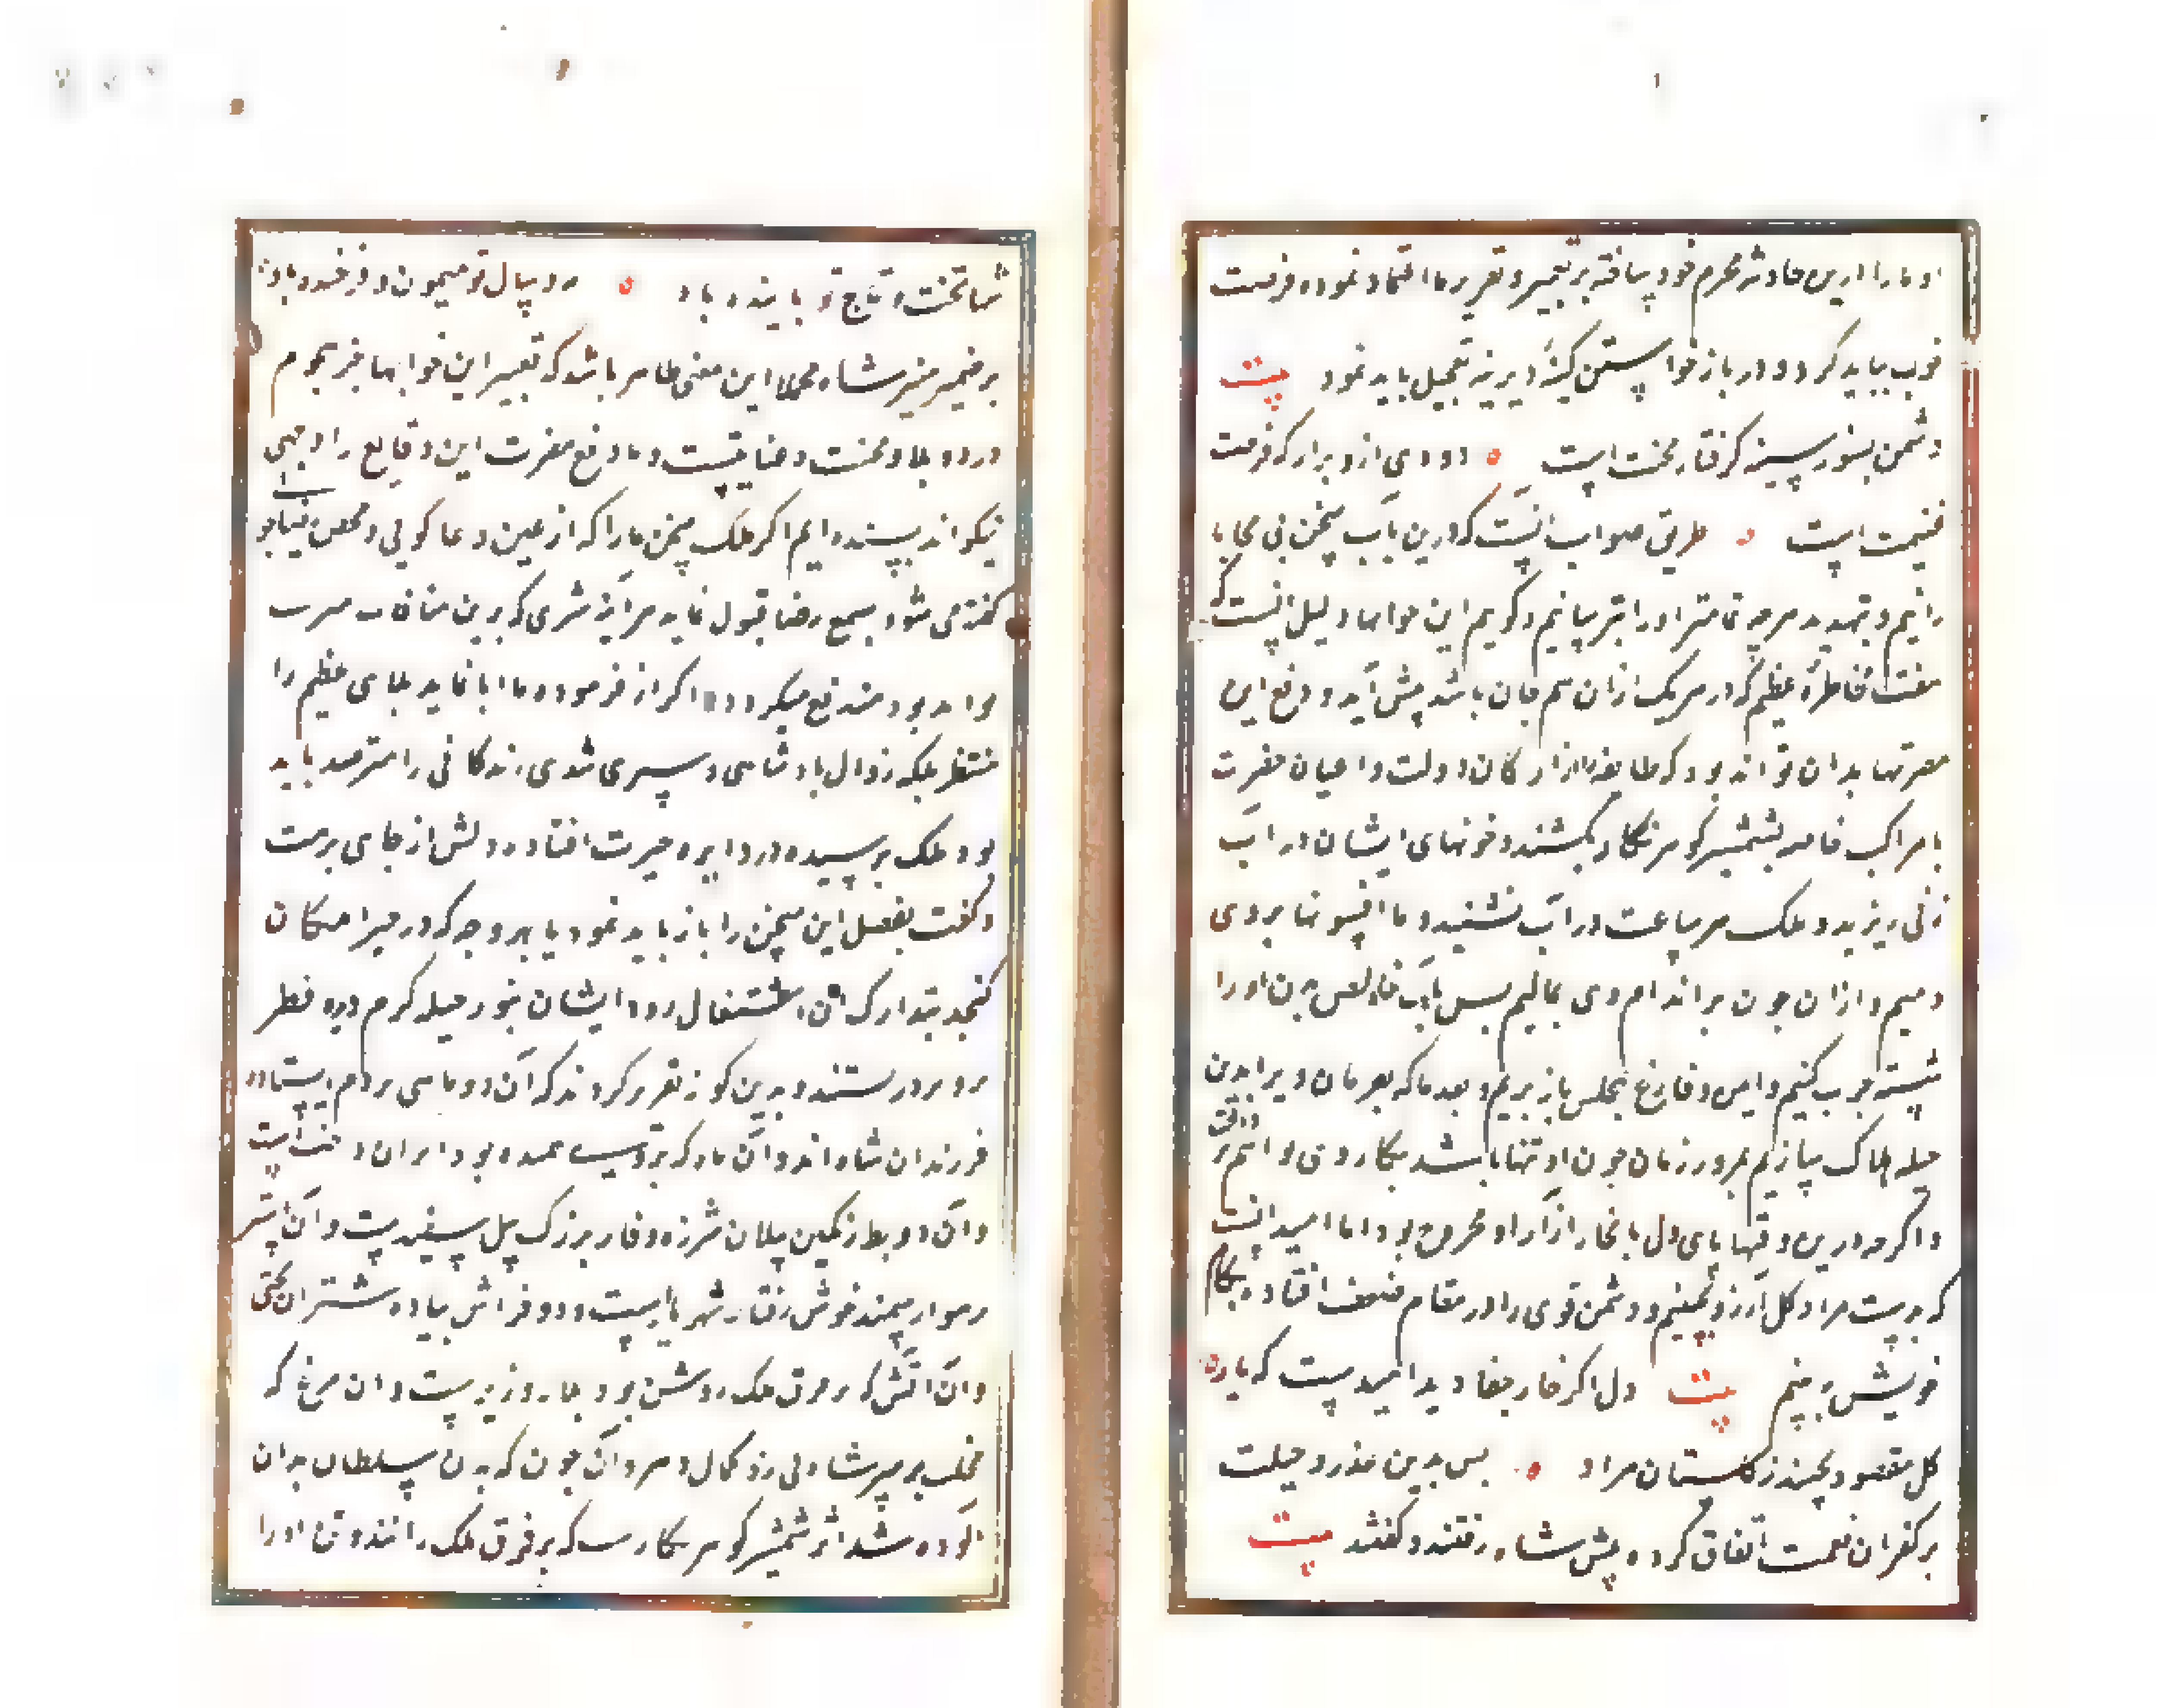 او ما را درین حادثه محرم خود ساخته بر تعبیر و تقریر ما اعتماد نموده فرصت
خوب بباید کرد و در باز خواستن کینهٔ دیرینه تعجیل باید نمود بیت
دشمن بسوز سینه گرفتار محنت است دودی ازو برار که فرصت
غنیمت است طریق صواب آنست که درین باب سخن بی محابا
رانیم و بتهدید هرچه تمامتر او را بترسانیم و گوییم این خوابها دلیل آنست که
هفت مخاطرهٔ عظیم که در هریک ازان بیم جان باشد پیش آید و دفع این
مضرتها بدان تواند بود که طایفهٔ از ارکان دولت و اعیان حضرت
با مراکب خاصه بشمشیر گوهرنگار بکشند و خونهای ایشان در آب
زنی ریزند و ملک سر ساعت در آب نشیند و ما افسونها بروی
دمیم و ازان خون بر اندام وی بمالیم پس بآب خالص بدن او را
شسته چرب کنیم و ایمن و فارغ بمجلس باز بریم و بعد ما که بعر مان ویرا بدین
حیله هلاک سازیم بمرور زمان چون او تنها باشد بکار وی توانیم پرداخت
و اگرچه درین وقتها پای دل بخار آزار او مجروح بود اما امید آنست
که بدست مراد گل آرزو بچینیم و دشمن قوی را در مقام ضعف افتاده بکام
خویش ببینیم بیت دل اگر خار جفا دید امیدست که باز
گل مقصود بچیند ز گلستان مراد پس بدین غدر و حیلت
بر کفران نعمت اتفاق کرده پیش شاه رفتند و گفتند بیت
شها تخت و تاج تو پاینده باد مه و سال تو میمون و فرخنده باد
بر ضمیر منیر شاه این معنی ظاهر باشد که تعبیر این خوابها جز هجوم
درد و بلا و محنت و عنا نیست و ما دفع مضرت این وقایع را وجهی
نیکو اندیشیده ایم اگر ملک سخن ما را که از عین دعا گویی و محض نیکخواهی
گفته می شود بسمع رضا قبول نماید هر آینه شری که برین منامات مرتب
خواهد بود مندفع میگردد و اگر از فرموده ما ابا نماید بلای عظیم را
منتظر بلکه زوال پادشاهی و سپری شدن زندگانی را مترصد باید
بود ملک بترسیده در دایره حیرت افتاده دلش از جای برفت
و گفت بفصل این سخن را باز باید نمود تا بهر وجه که در حیز امکان
گنجد بتدارک آن اشتغال رود ایشان تنور حیله گرم دیده فطیر
مزور در بستند و بدین گونه تقریر کردند که آن دو ماهی بر دم ایستاده
فرزندان شاه اند و آن مار که بر پیچیده بود ایران دخت است
و آن دو بط رنگین پیلان شرزه و قاز بزرگ پیل سفیدست و آن استر
رهوار سمند خوش رفتار شهریارست و دو فراش پیاده شتران بختی
و آن آتش که بر فرق ملک روشن بود بلار وزیرست و آن مرغ که
مخلب بر سر شاه می زد کمال دبیر و آن خون که بدن سلطان بدان
آلوده شد اثر شمشیر گوهرنگارست که بر فرق ملک رانند و تن او را